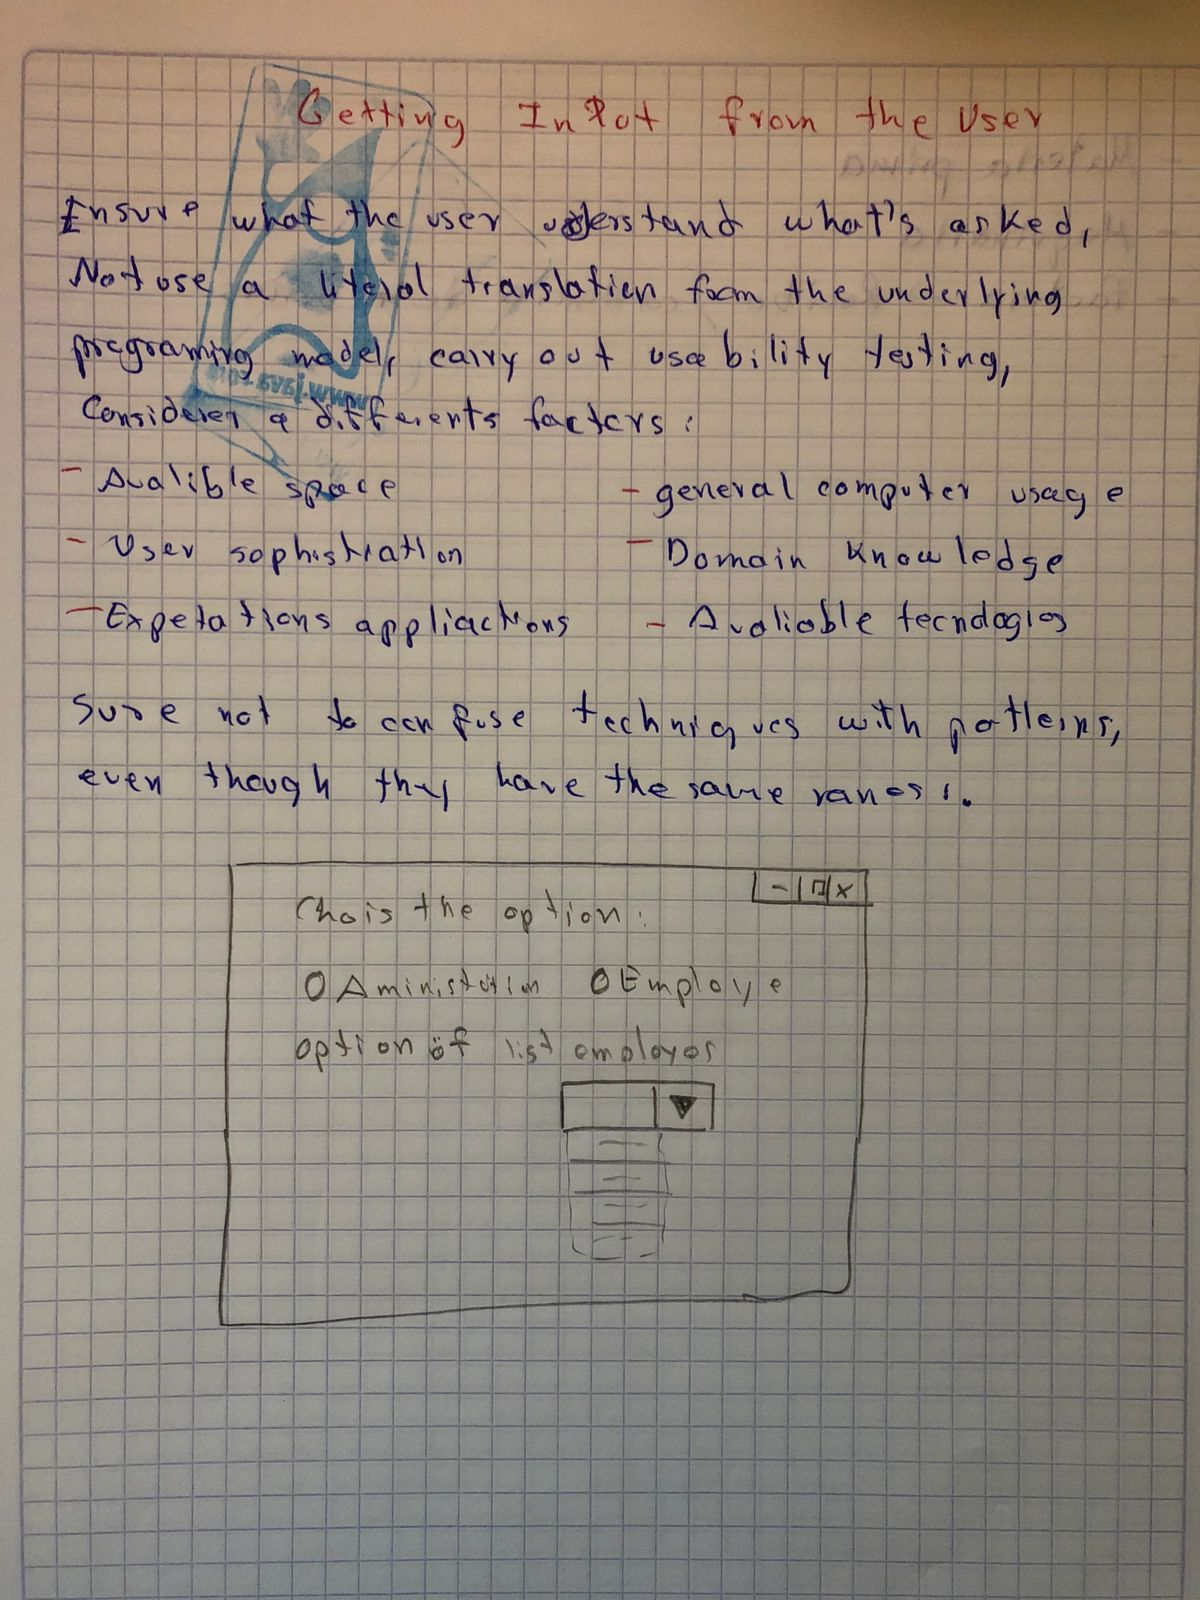 Getting InPot from the User
Ensure what the user understand what's asked,
Not use a literal translation foom the underlying
programing model, carry out useability testing,
Considerer a differents factors:
- Avalible space
- general computer usage
- User sophistration
- Domain knowledge
- Expetations appliactions
- Avaliable tecnologios
Sure not to confuse techniques with patterns,
even though they have the same
Chois the option:
O Aministration O Employe
option of list employes
- □ x